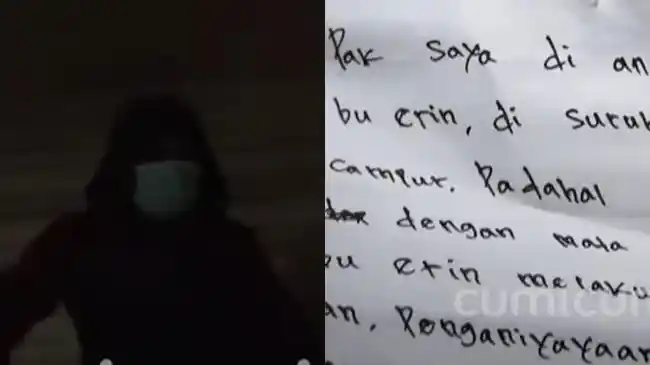 Pak saya di an
bu erin, di suruh
campur. Padahal
dengan mata
bu erin melaku
an, Penganiyayaan
cumicum